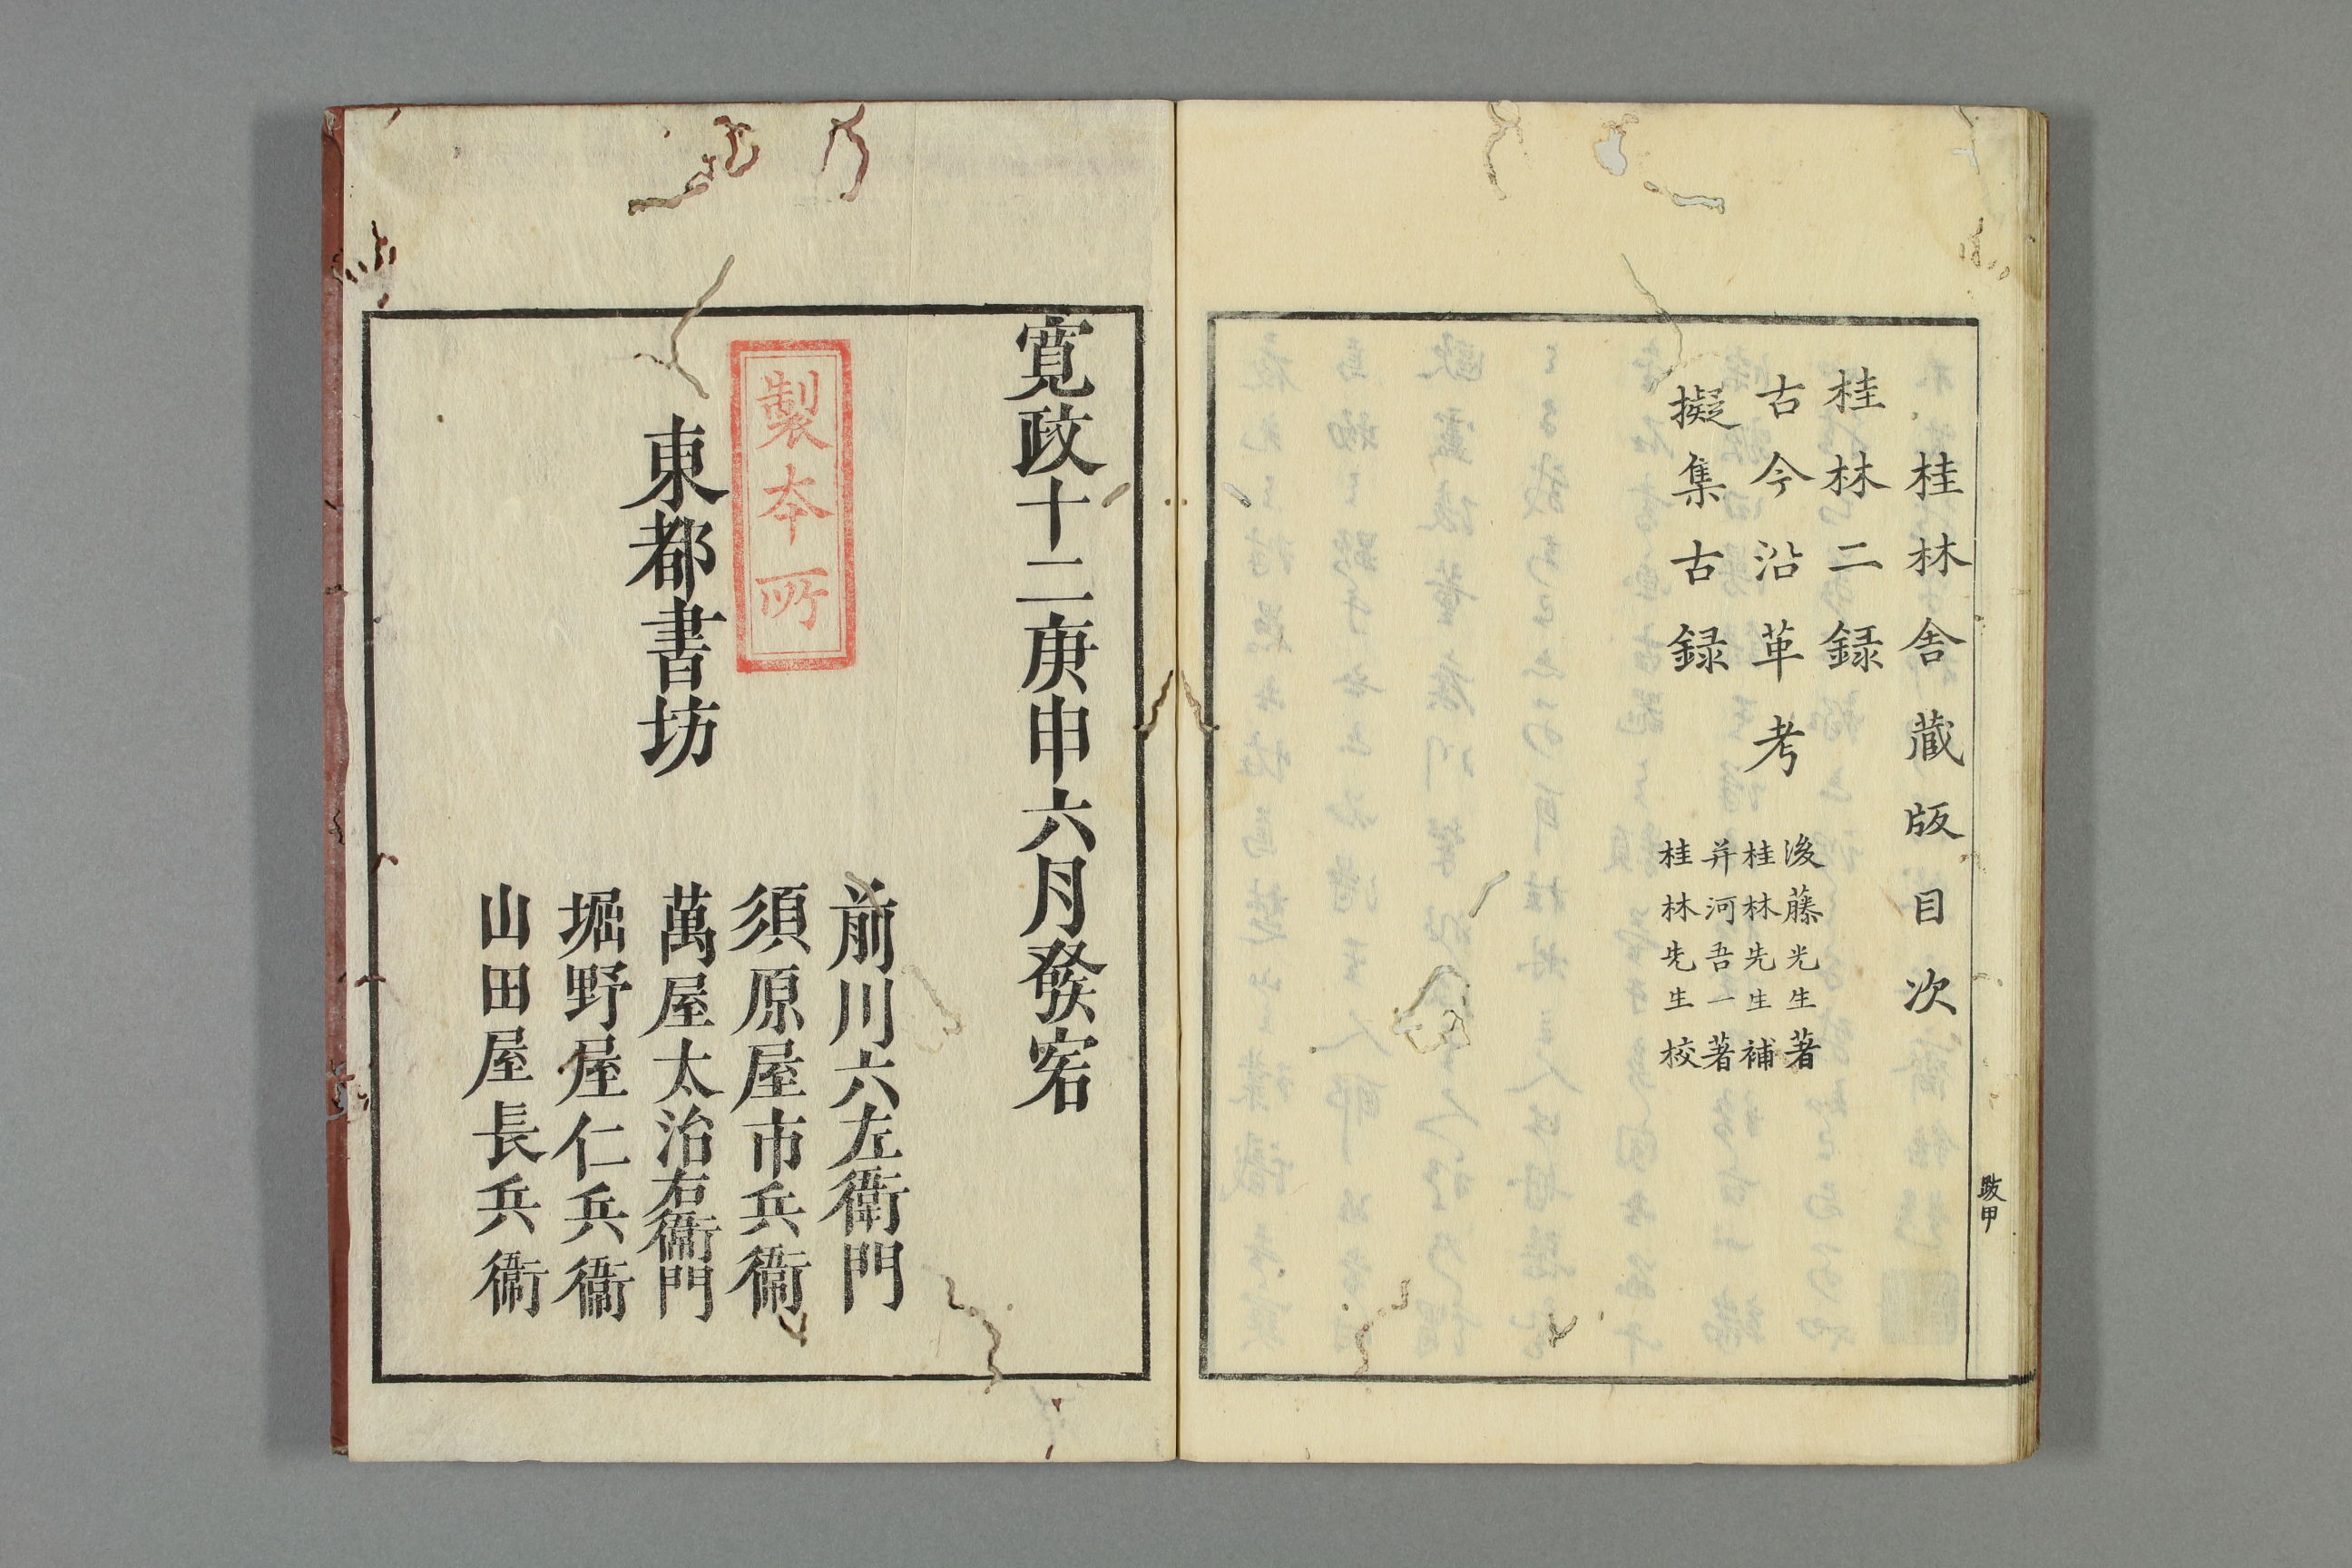 桂林舎蔵版目次
桂林二録
古今沿革考
後藤光生著
桂林先生補
擬集古録
并河吾一著
桂林先生校
跋甲
寛政十二庚申六月發客
製本所
東都書坊
前川六左衛門
須原屋市兵衛
萬屋太治右衛門
堀野屋仁兵衛
山田屋長兵衛